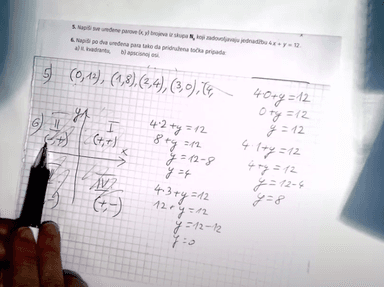 5. Napiši sve uređene parove (x, y) brojeva iz skupa N₀ koji zadovoljavaju jednadžbu 4x + y = 12.
6. Napiši po dva uređena para tako da pridružena točka pripada:
a) II. kvadrantu, b) apscisnoj osi.
5) (0,12), (1,8), (2,4), (3,0), (4,
4·0+y=12
0+y=12
y=12
4·1+y=12
4+y=12
y=12-4
y=8
6) II y I
(-,+) (+,+)
x
IV
(+,-)
4·2+y=12
8+y=12
y=12-8
y=4
4·3+y=12
12+y=12
y=12-12
y=0